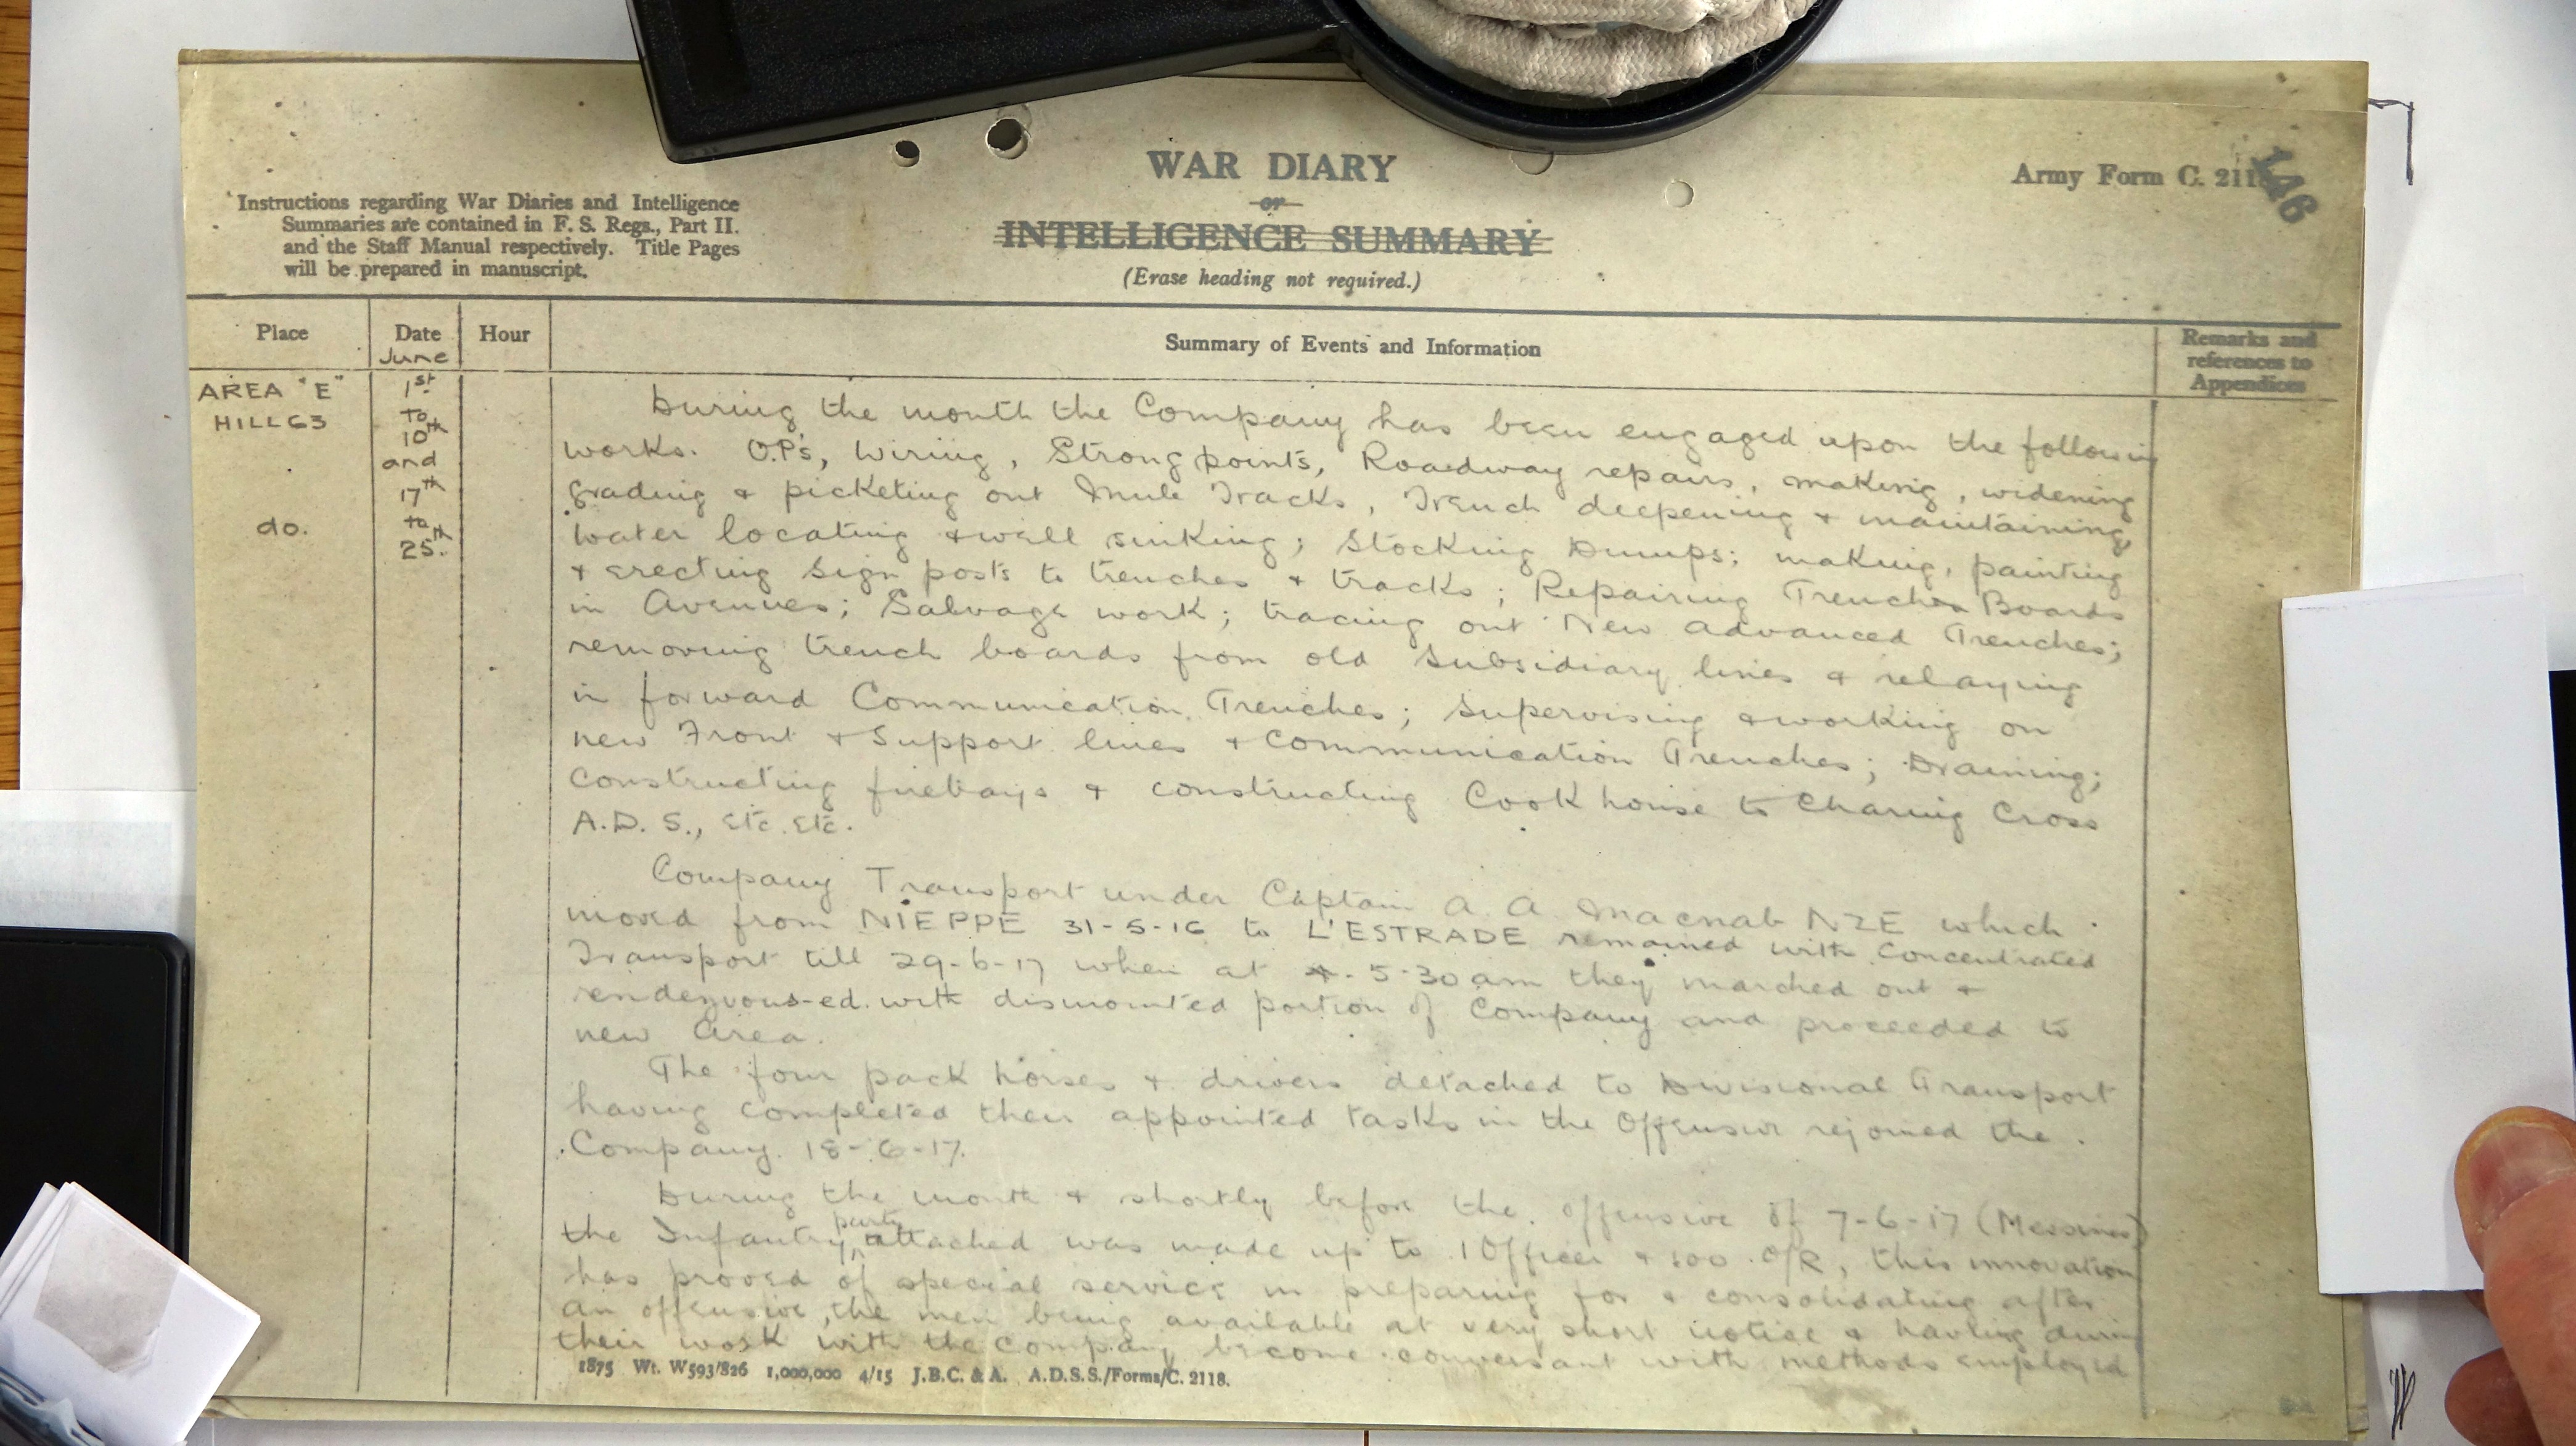 WAR DIARY
or
INTELLIGENCE SUMMARY
(Erase heading not required.)
Army Form C. 211
146
Instructions regarding War Diaries and Intelligence
Summaries are contained in F. S. Regs., Part II.
and the Staff Manual respectively. Title Pages
will be prepared in manuscript.
Place
Date
Hour
Summary of Events and Information
Remarks and
references to
Appendices
June
AREA "E"
HILL 63
do.
1st
to
10th
and
17th
to
25th
During the month the Company has been engaged upon the following
works. O.P's, Wiring, Strong points, Roadway repairs, making, widening
grading & picketing out Mule Tracks, Trench deepening & maintaining,
water locating & well sinking; Stocking Dumps; making, painting
& erecting Sign posts to trenches & tracks; Repairing Trench Boards
in Avenues; Salvage work; tracing out New Advanced Trenches;
removing trench boards from old Subsidiary lines & relaying
in forward Communication Trenches; Supervising & working on
new Front & Support lines & Communication Trenches; Draining;
Constructing firebays & constructing Cookhouse to Charing Cross
A.D.S., etc. etc.
Company Transport under Captain A. A. Macnab NZE which
moved from NIEPPE 31-5-16 to L'ESTRADE remained with Concentrated
Transport till 29-6-17 when at 5-30 am they marched out &
rendezvous-ed with dismounted portion of Company and proceeded to
new Area.
The four pack horses & drivers detached to Divisional Transport
having completed their appointed tasks in the Offensive rejoined the
Company 18-6-17.
During the month & shortly before the offensive of 7-6-17 (Messines)
the Infantry party attached was made up to 1 Officer & 100 O/R, this innovation
has proved of special service in preparing for & consolidating after
an offensive, the men being available at very short notice & having during
their work with the Company become conversant with methods employed
1875 Wt. W593/826 1,000,000 4/15 J.B.C. & A. A.D.S.S./Forms/C. 2118.